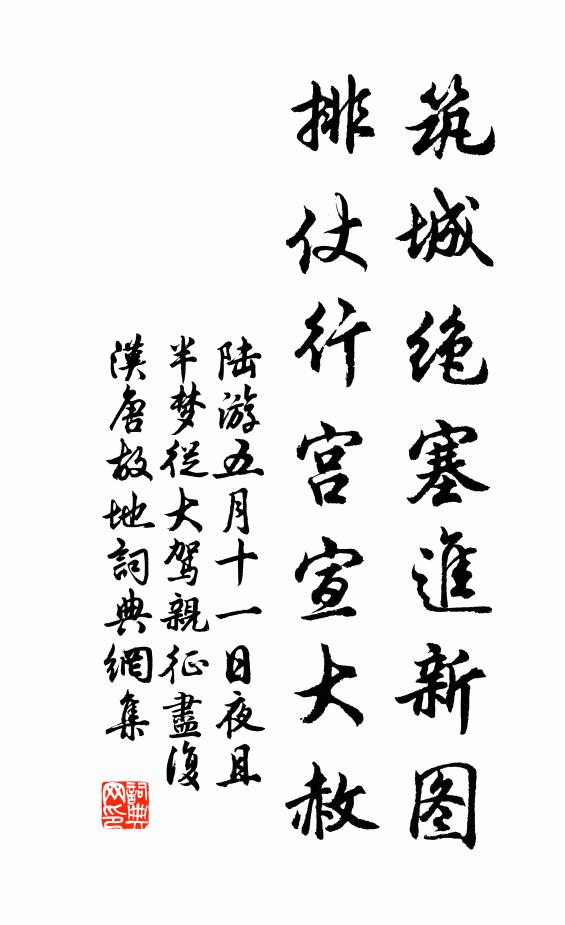 筑城绝塞進新图
排仗行宫宣大赦
陆游五月十一日夜且
半梦從大駕親征盡復
漢唐故地詞典網集
詞典
网印